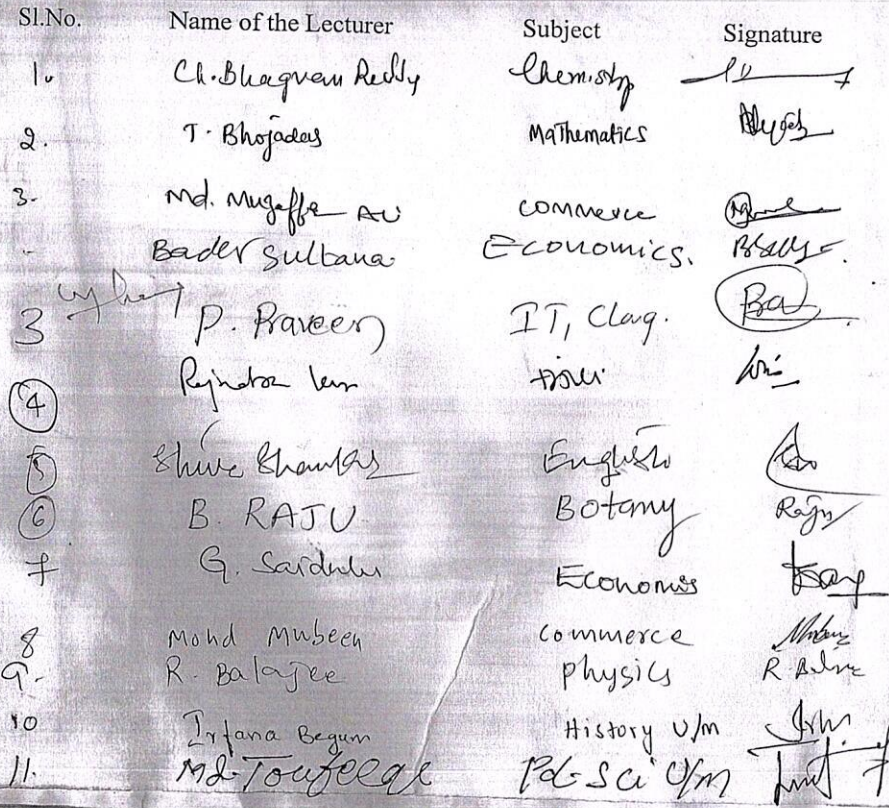 Sl.No. Name of the Lecturer Subject Signature
1. Ch. Bhagvan Reddy Chemistry
2. T. Bhojadas Mathematics
3. Md. Muzaffar Ali Commerce
Bader Sultana Economics.
3 P. Praveen IT, Clag.
4
5 Shiva Shankar English
6 B. RAJU Botany Raju
7 G. Saidulu Economis
8 Mohd Mubeen Commerce
9. R. Balajee physics R
10 Irfana Begum History U/m
11. Md. Toufeeqe Pol-Sci U/m